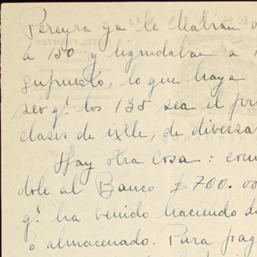 Pereyra ya le habían
á 150 y liquidaban a
supuesto, lo que haya
ser q! los 135 sea el
clases de ixtle, de diversa
Hay otra cosa: com
dole al Banco $700.00
q! ha venido haciendo d
o almacenado. Para pag